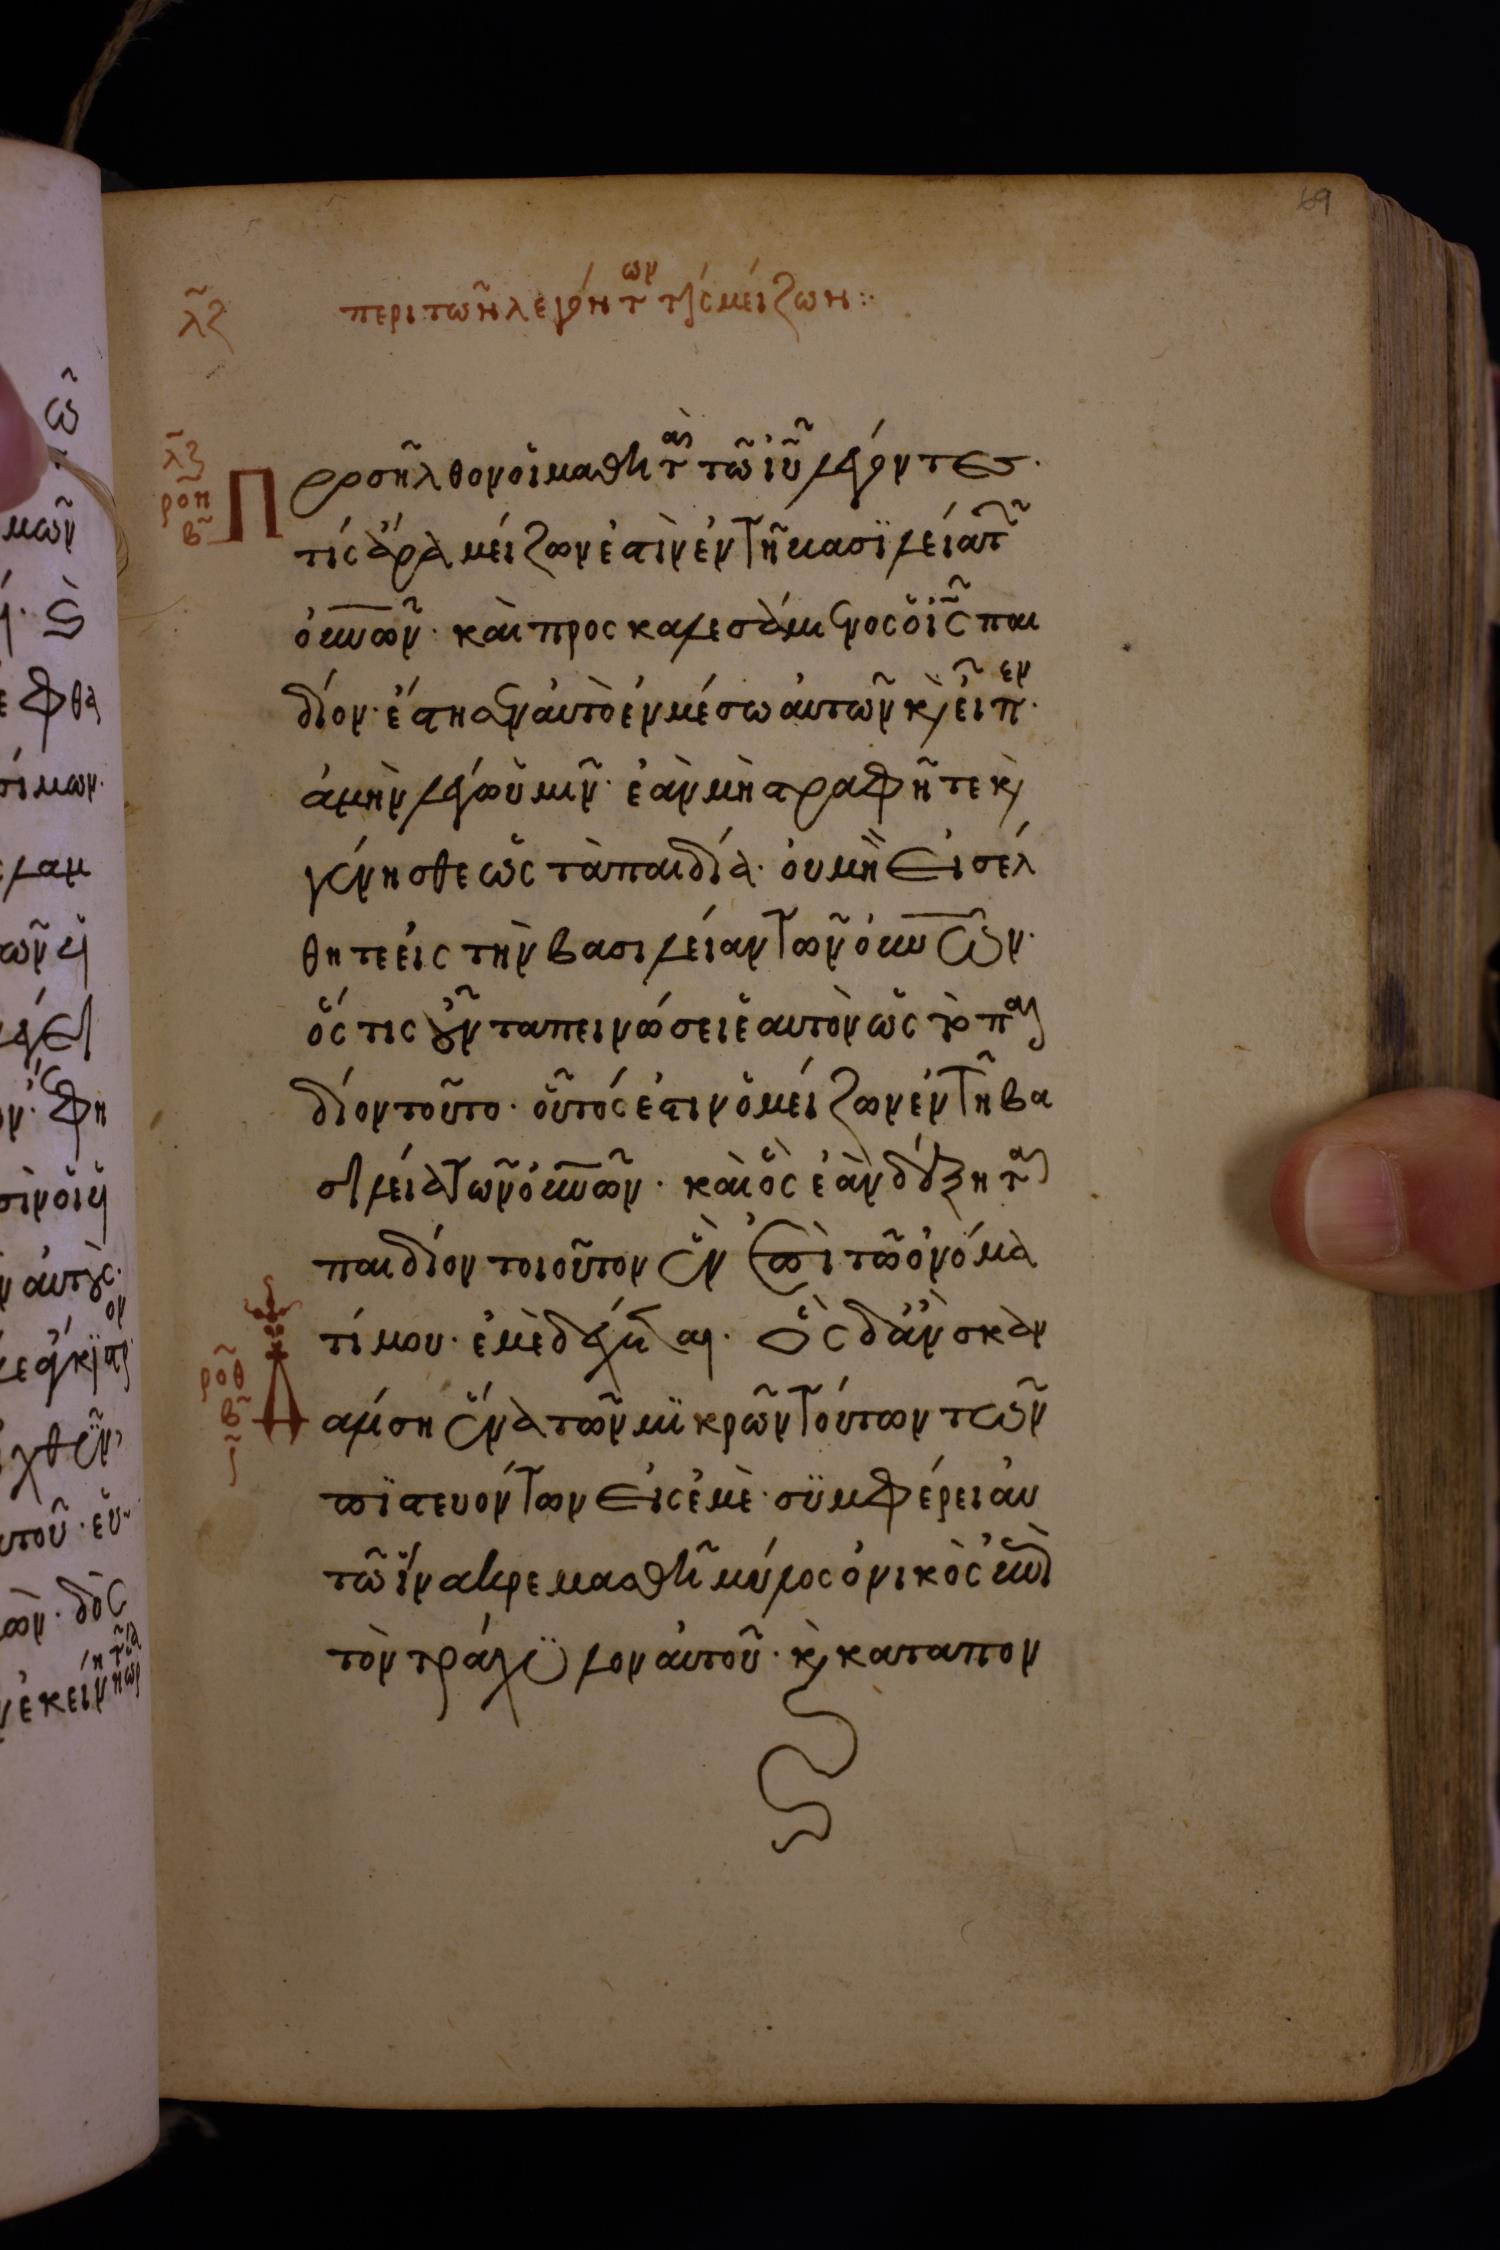 69
λζ περι των λεγόντων τίς μείζων::
λζ
ροη
β
Προσῆλθον οἱ μαθηταὶ τῶ ἰῦ λέγοντες·
τίς ἄρα μείζων ἐστὶν ἐν τῆ βασϊλεία τ
οὐνῶν· καὶ προσκαλεσάμενος ὁ ἰς παι
δίον· ἔστησεν αυτὸ ἐν μέσω αυτῶν κὶ εἶπεν·
ἀμὴν λέγω ὑμῖν· ἐὰν μὴ στραφῆτε κὶ
γένησθε ὡς τὰ παιδία· ὀυ μὴ εἰσέλ
θητε εἰς τὴν βασιλείαν τῶν οὐνῶν·
ὅς τις οὖν ταπεινώσει ἑαυτὸν ὡς τὸ παι
δίον τοῦτο· οὗτός ἐστιν ὁ μείζων ἐν τῆ βα
σιλεία τῶν οὐνῶν· καὶ ὃς ἐὰν δέξηται
παιδίον τοιοῦτον ἓν ἐπὶ τῶ ὀνόμα
τί μου· ἐμὲ δέχεται· Ὃς δ' ἂν σκαν
ροθ
β
δαλίση ἕνα τῶν μϊκρῶν τούτων τῶν
πϊστευόντων εἰς ἐμὲ· σϋμφέρει ἀυ
τῶ ἵνα κρεμασθῆ μύλος ὀνικὸς ἐπὶ
τὸν τράχϋλον ἀυτοῦ· κὶ καταπον